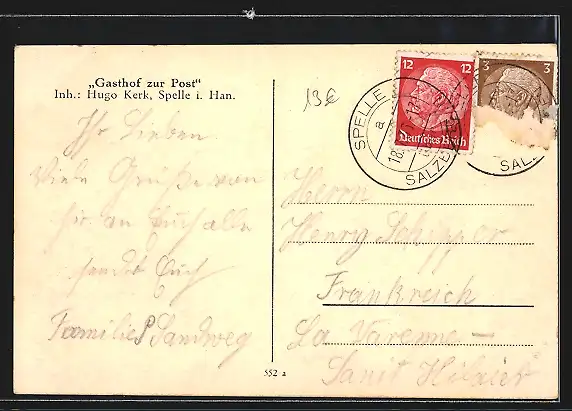 „Gasthof zur Post"
Inh.: Hugo Kerk, Spelle i. Han.
13€
Ihr Lieben
Viele Grüße von
hir an Euch alle
sendet Euch
Familie Sandweg
552 a
12 12
Deutsches Reich
3 3
SPELLE
a
18.
SALZB
SALZ
Herrn
Henry Schipper
Frankreich
La Varenne –
Sanit Hilaier